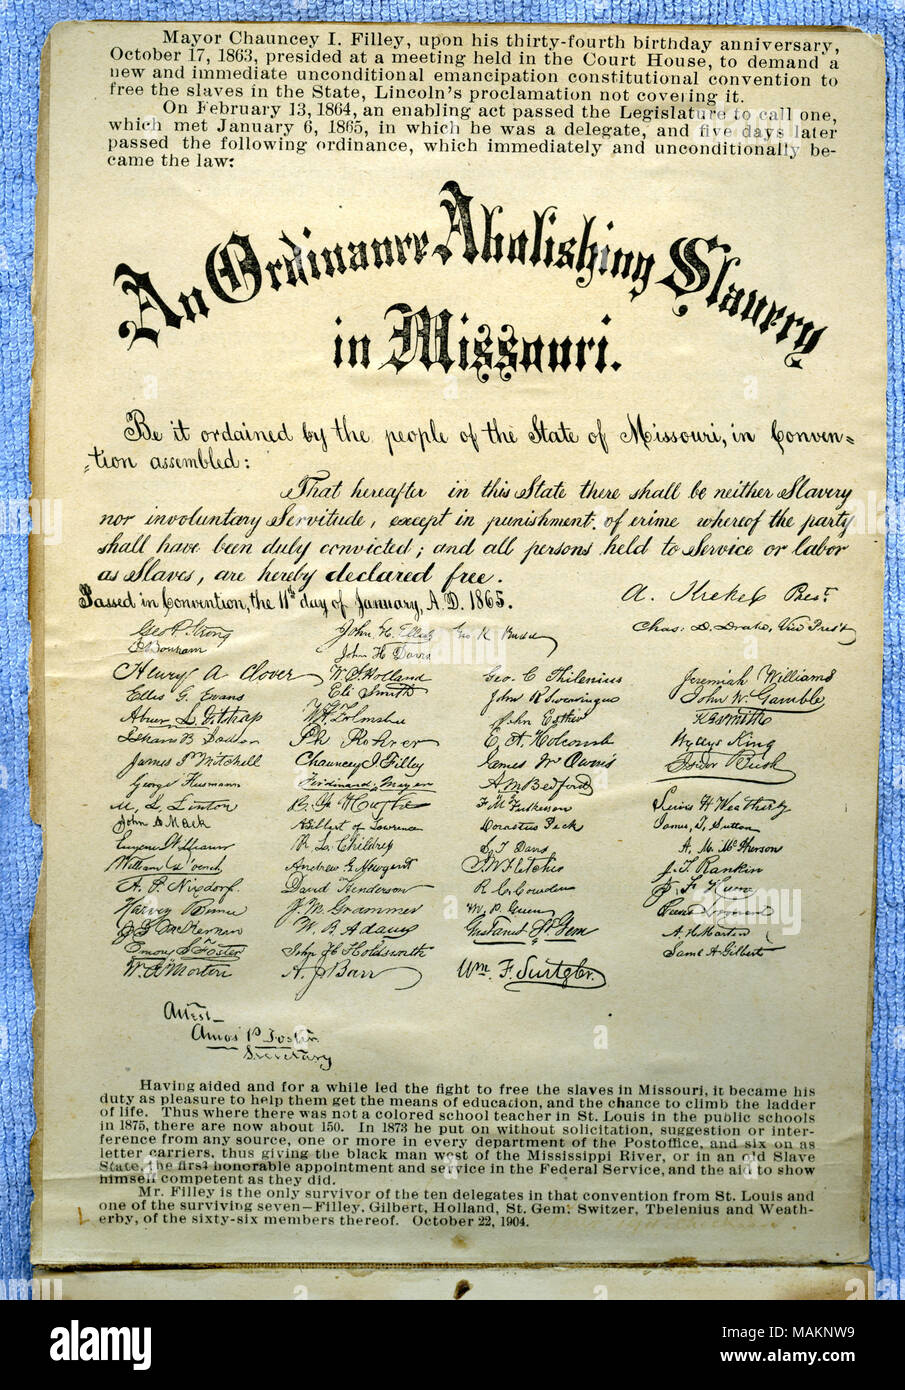 Mayor Chauncey I. Filley, upon his thirty-fourth birthday anniversary,
October 17, 1863, presided at a meeting held in the Court House, to demand a
new and immediate unconditional emancipation constitutional convention to
free the slaves in the State, Lincoln's proclamation not covering it.
On February 13, 1864, an enabling act passed the Legislature to call one,
which met January 6, 1865, in which he was a delegate, and five days later
passed the following ordinance, which immediately and unconditionally be-
came the law:
An Ordinance Abolishing Slavery
in Missouri.
Be it ordained by the people of the State of Missouri, in Conven=
=tion assembled:
That hereafter in this State there shall be neither Slavery
nor involuntary Servitude, except in punishment of crime whereof the party
shall have been duly convicted; and all persons held to Service or labor
as Slaves, are hereby declared free.
Passed in Convention, the 11th day of January, A.D. 1865.
A. Krekel Prest
Chas. D. Drake, Vice Prest
Geo P. Strong
D Bonham
Henry A Clover
Ellis G. Evans
Abner L. Gilstrap
Isham B Dodson
James P Mitchell
George Husmann
M. L. Linton
John A Mack
A. P. Nixdorf.
Harvey Bunce
J F McKernan
Emory S Foster
W. A Morton
John H. Ellis
John H Davis
W S Holland
Eli Smith
Ph Rohrer
Chauncey I Filley
Ferdinand Meyer
Gilbert of Lawrence
R. L. Childress
Andrew G Newgent
David Henderson
J. M. Grammer
W. B Adams
John H Holdsworth
A. J Barr
Geo K Budd
Geo. C Thilenius
John R Swearingen
John Esther
E A Holcomb
James W Owens
A M Bedford
Dorastus Peck
S T Davis
T W Fletcher
R C Cowden
W. P. Green
Gustavus St Gem
Wm. F. Switzler.
Jeremiah Williams
John W. Gamble
K G Smith
Wyllys King
Isidor Bush
Lewis H Weatherby
James T. Sutton
A. M. McPherson
J. T. Rankin
J. F Hume
A. H. Martin
Saml A Gilbert
Attest
Amos P. Foster
Secretary
Having aided and for a while led the fight to free the slaves in Missouri, it became his
duty as pleasure to help them get the means of education, and the chance to climb the ladder
of life. Thus where there was not a colored school teacher in St. Louis in the public schools
in 1875, there are now about 150. In 1873 he put on without solicitation, suggestion or inter-
ference from any source, one or more in every department of the Postoffice, and six on as
letter carriers, thus giving the black man west of the Mississippi River, or in an old Slave
State, the first honorable appointment and service in the Federal Service, and the aid to show
himself competent as they did.
Mr. Filley is the only survivor of the ten delegates in that convention from St. Louis and
one of the surviving seven—Filley, Gilbert, Holland, St. Gem, Switzer, Thelenius and Weath-
erby, of the sixty-six members thereof. October 22, 1904.
alamy
Image ID: MAKNW9
www.alamy.com